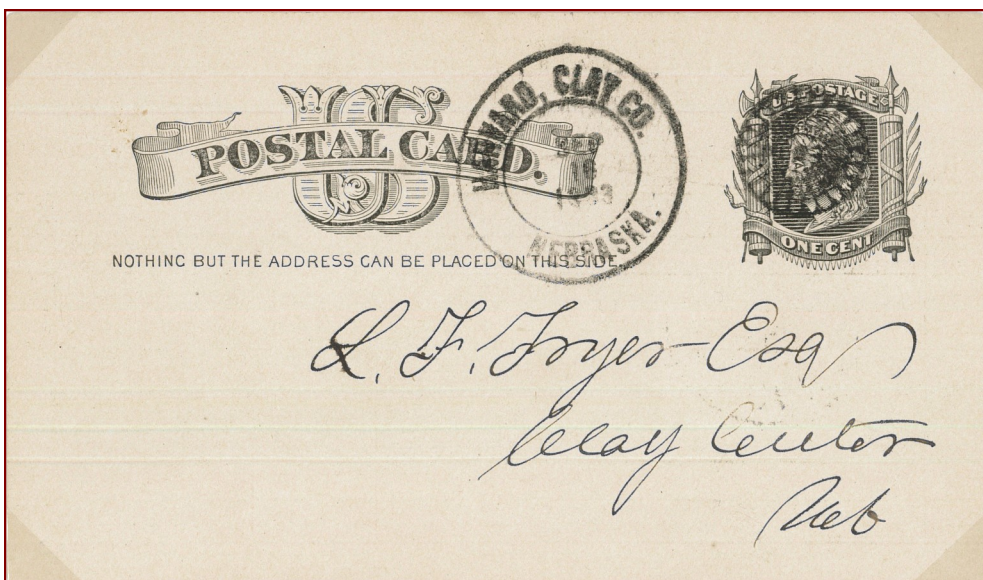 US
POSTAL CARD.
HARVARD, CLAY CO.
NEBRASKA.
U.S. POSTAGE
ONE CENT
NOTHING BUT THE ADDRESS CAN BE PLACED ON THIS SIDE.
L. F. Fryer Esq
Clay Center
Neb